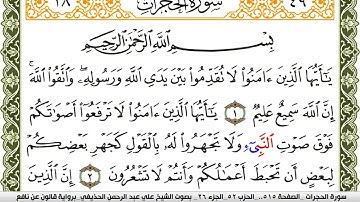 ١٨ سورة الحجرات ٤٩
بِسْمِ اللَّهِ الرَّحْمَٰنِ الرَّحِيمِ
يَٰٓأَيُّهَا الَّذِينَ ءَامَنُوا لَا تُقَدِّمُوا بَيْنَ يَدَيِ اللَّهِ وَرَسُولِهِۦ وَاتَّقُوا اللَّهَ
إِنَّ اللَّهَ سَمِيعٌ عَلِيمٌ ١ يَٰٓأَيُّهَا الَّذِينَ ءَامَنُوا لَا تَرْفَعُوا أَصْوَٰتَكُمْ
فَوْقَ صَوْتِ النَّبِيِٓءِ وَلَا تَجْهَرُوا لَهُۥ بِالْقَوْلِ كَجَهْرِ بَعْضِكُمْ
لِبَعْضٍ أَن تَحْبَطَ أَعْمَٰلُكُمْ وَأَنتُمْ لَا تَشْعُرُونَ ٢ إِنَّ الَّذِينَ
سورة الحجرات ..الصفحة ٥١٥.. الحزب ٥٢..الجزء ٢٦.. بصوت الشيخ علي عبد الرحمن الحذيفي..برواية قالون عن نافع